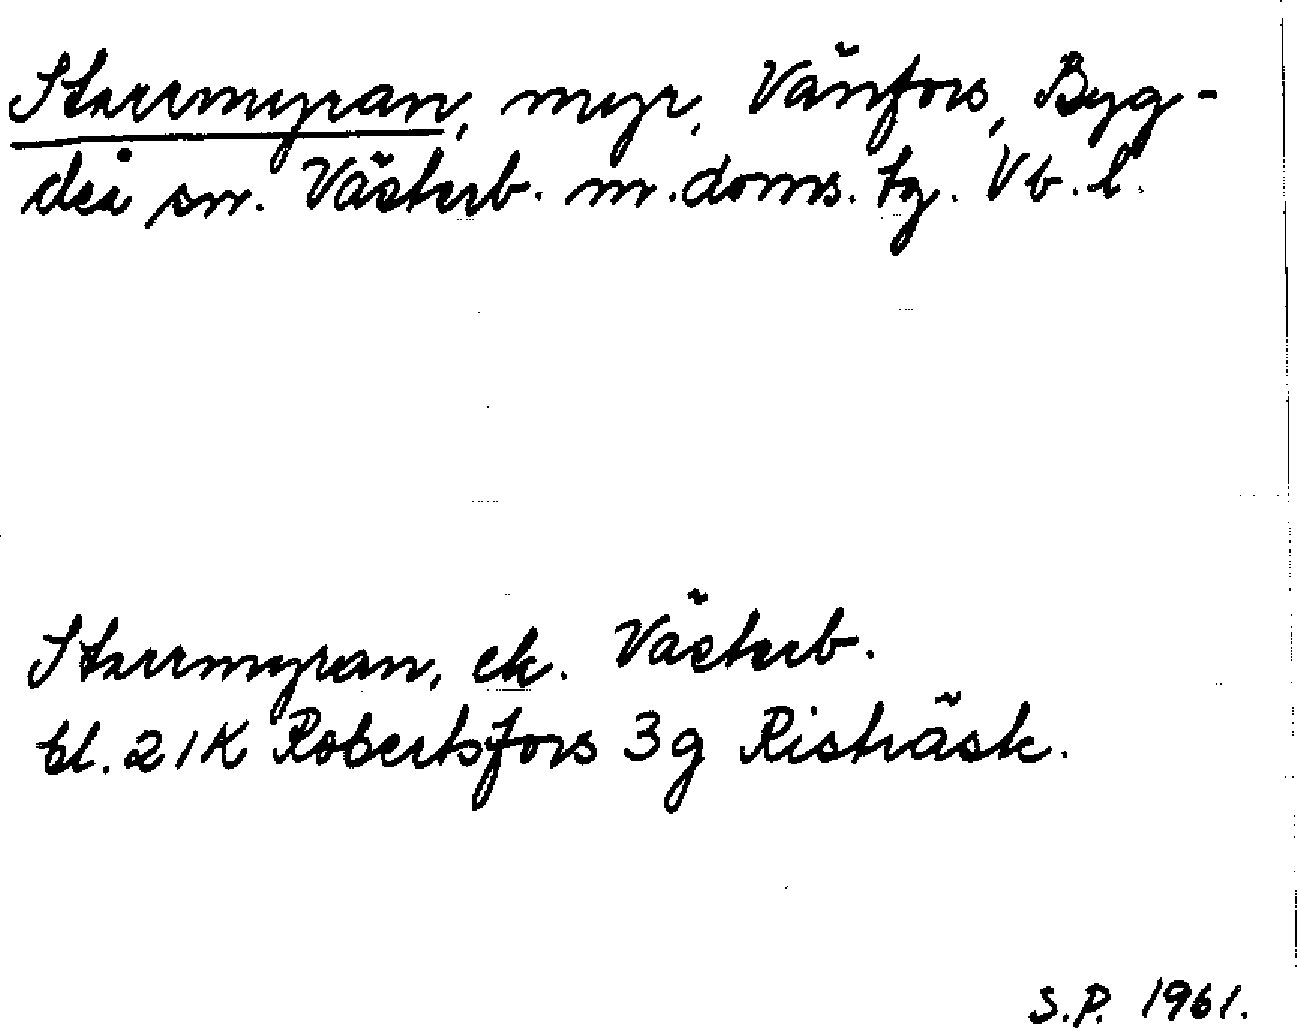 Starrmyran, myr, Vänfors, Byg-
deå sn. Västerb. m. doms. tg. Vb. l.
Starrmyran, ek. Västerb.
bl. 21K Robertsfors 3g Risträsk.
S.P. 1961.